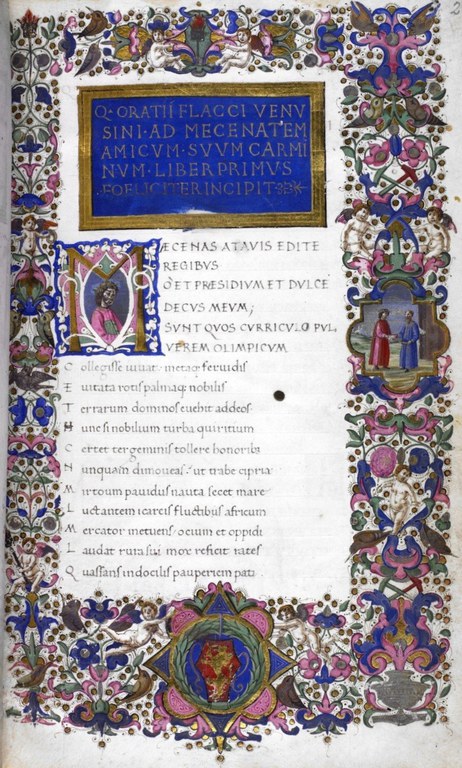 2
Q · ORATII FLACCI VENV
SINI · AD MECENATEM
AMICVM · SVVM CARMI
NVM · LIBER PRIMVS
FOELICITER INCIPIT
MECENAS ATAVIS EDITE
REGIBVS
O ET PRESIDIVM ET DVLCE
DECVS MEVM;
SVNT QVOS CVRRICVLO PVL
VEREM OLIMPICVM
Collegisse iuvat metaq; fervidis
Evitata rotis palmaq; nobilis
Terrarum dominos evehit ad deos·
Hunc si nobilium turba quiritium
Certet tergeminis tollere honorib;
Nunquam dimoveas· ut trabe cipria
Mirtoum pavidus nauta secet mare·
Luctantem icareis fluctibus africum
Mercator metuens· ocium et oppidi
Laudat rura sui mox reficit rates
Quassas indocilis pauperiem pati·